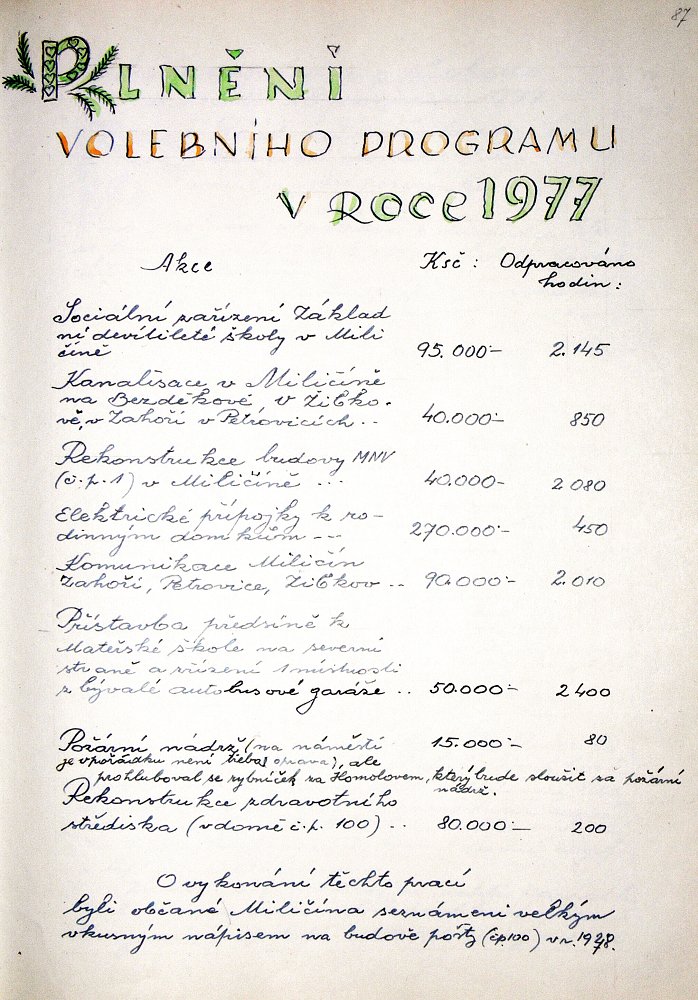 87
PLNĚNÍ
VOLEBNÍHO PROGRAMU
V ROCE 1977
Akce Ksč: Odpracováno
hodin:
Sociální zařízení Základ
ní devítileté školy v Mili
číně 95.000·- 2.145
Kanalisace v Miličíně
na Bezděkově, v Žibko-
vě, v Zahoří v Petrovicích.. 40.000·- 850
Rekonstrukce budovy MNV
(č.p.1) v Miličíně ... 40.000- 2 080
Elektrické přípojky k ro-
dinným domkům --- 270.000·- 450
Komunikace Miličín
Zahoří, Petrovice, Žibkov .. 90.000·- 2.010
Přístavba předsíně k
Mateřské škole na severní
straně a zřízení 1 místnosti
z bývalé autobusové garáže .. 50.000·- 2400
Požární nádrž (na náměstí 15.000·- 80
je v pořádku není třeba oprava), ale
prohluboval se rybníček za Homolovem, který bude sloužit za požární
nádrž.
Rekonstrukce zdravotního
střediska (v domě č.p. 100) .. 80.000·- 200
O vykonání těchto prací
byli občané Miličína seznámeni velkým
vkusným nápisem na budově pošty (čp.100) v r. 1978.